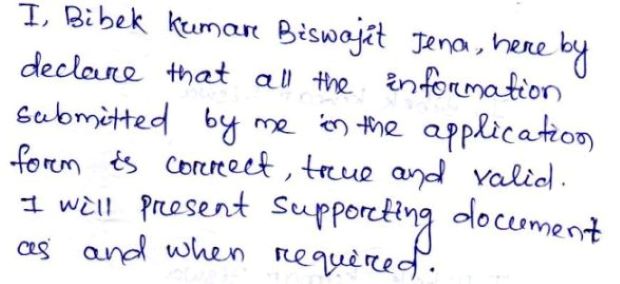 I, Bibek Kumar Biswajit Jena, here by
declare that all the information
submitted by me in the application
form is correct, true and valid.
I will present supporting document
as and when required.